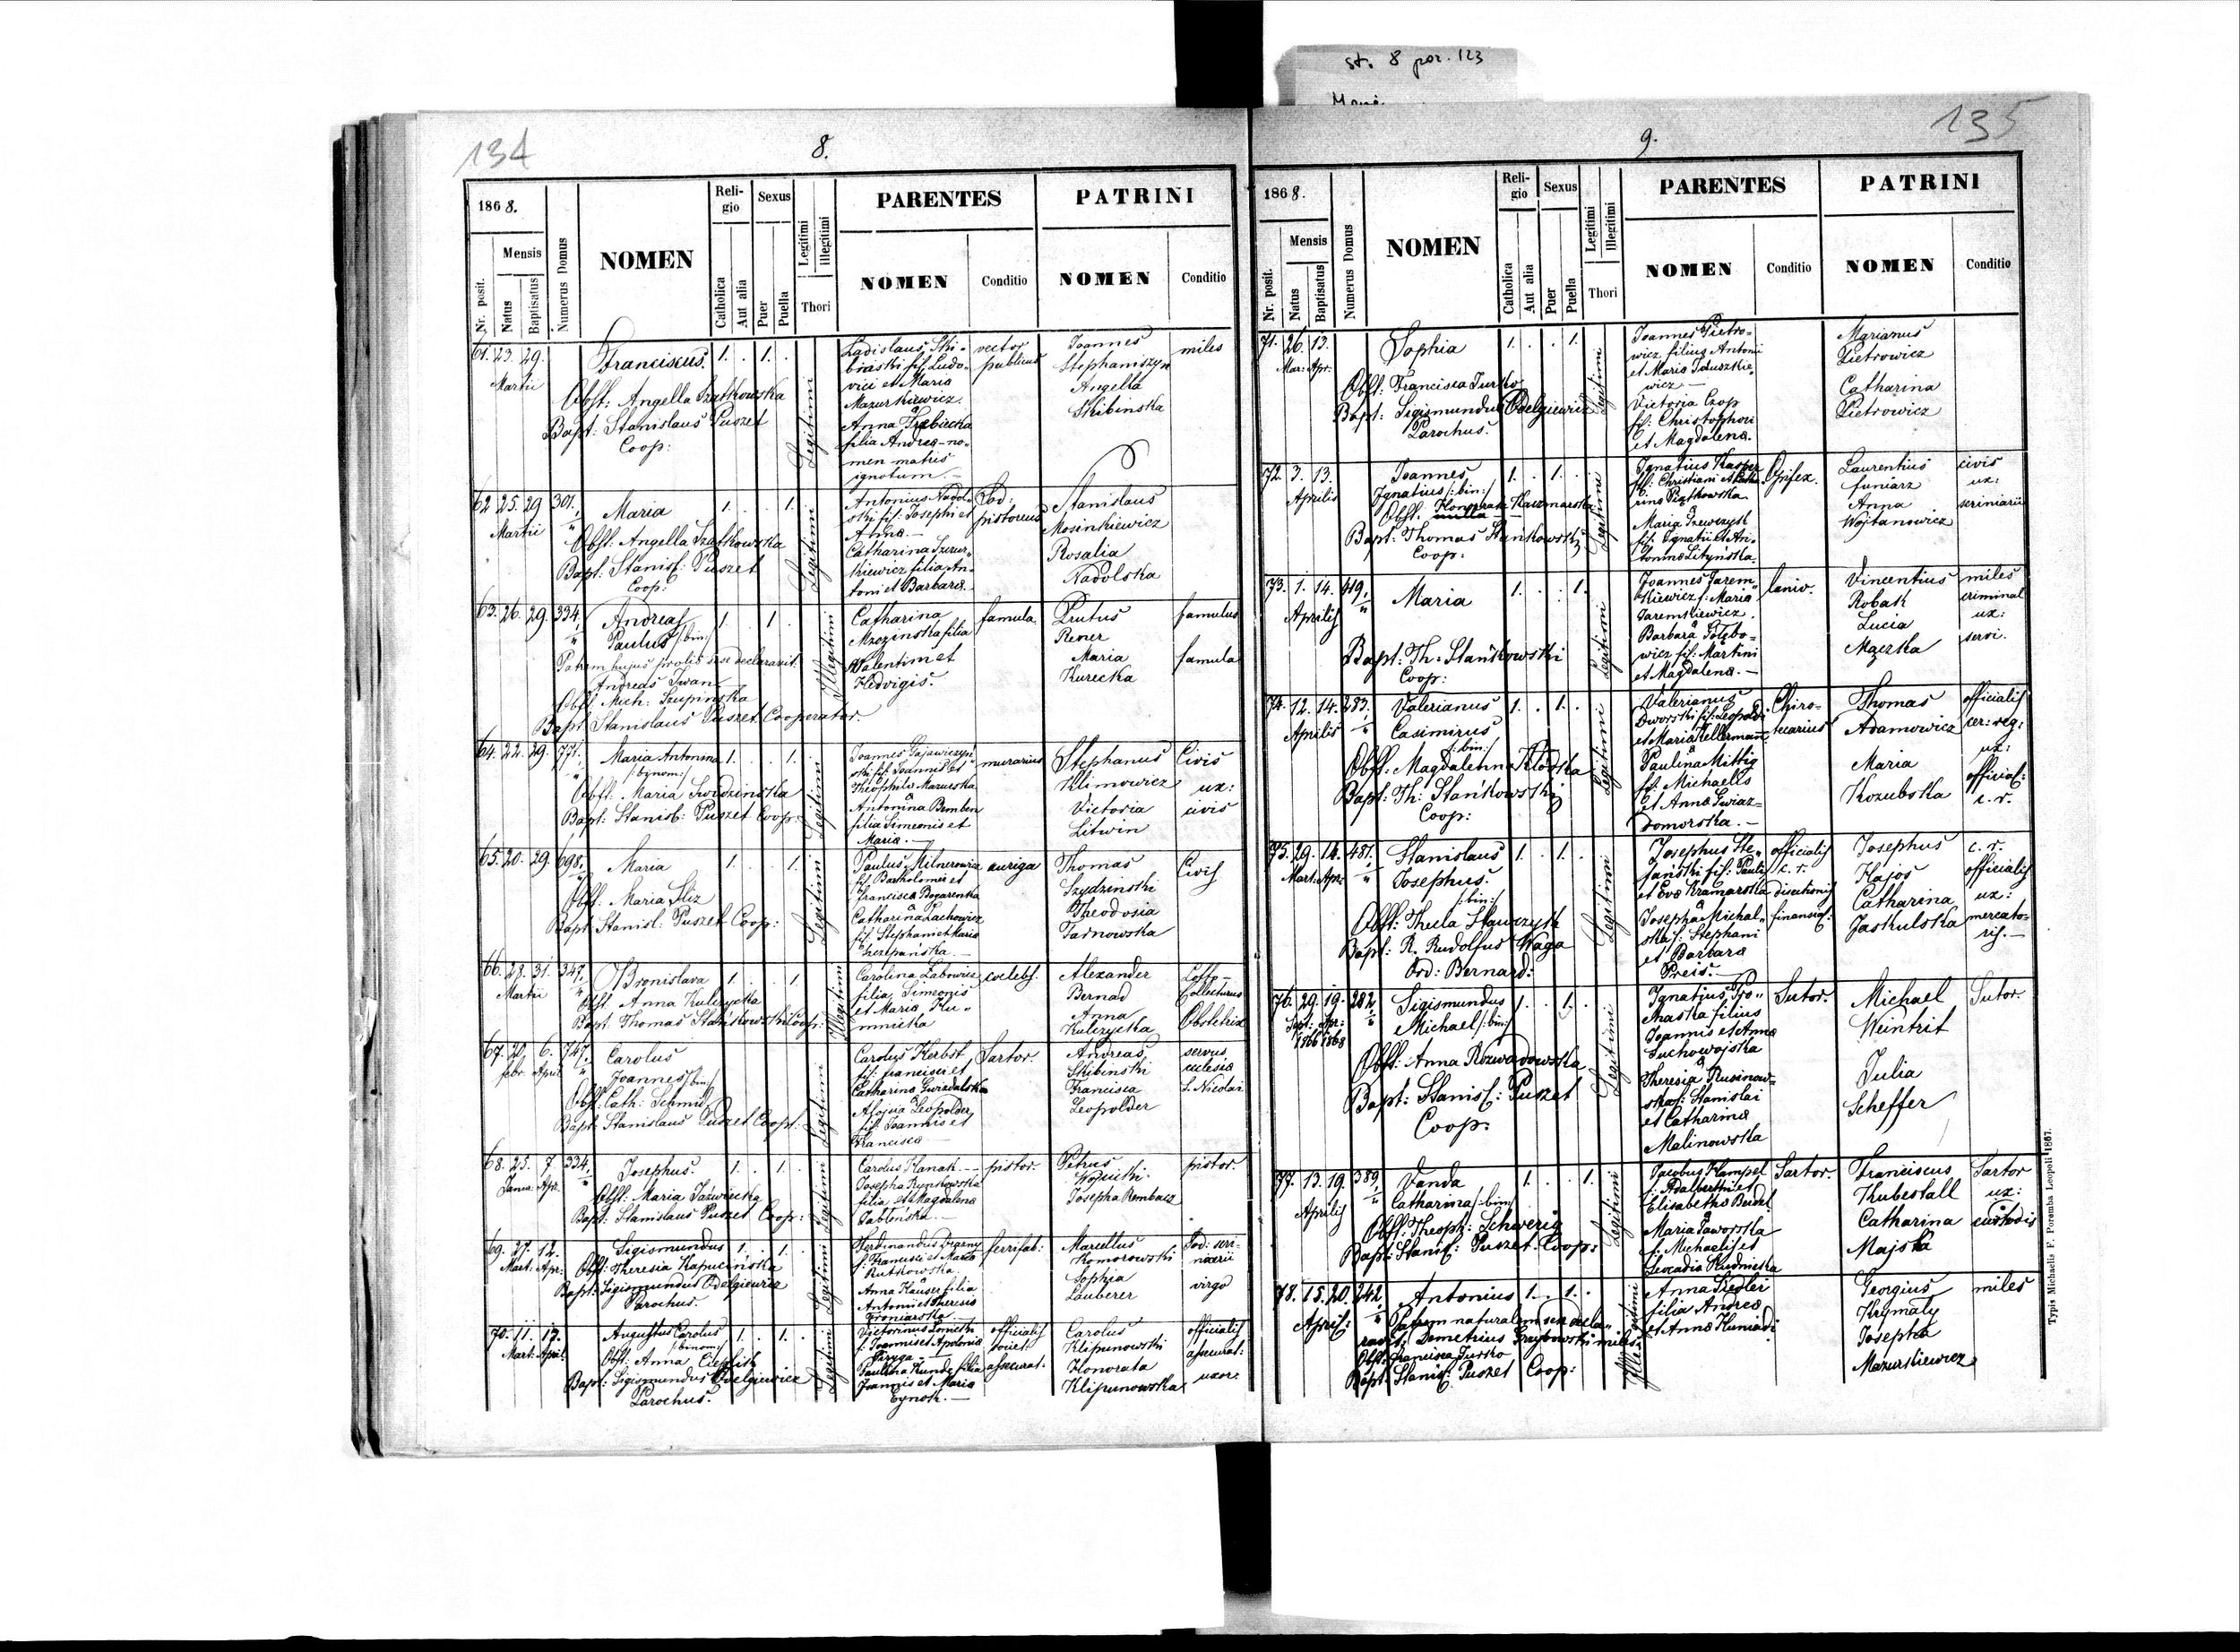 st. 8 poz. 123
134
8.
1868.
Nr. posit.
Mensis
Natus
Baptisatus
Numerus Domus
NOMEN
Reli-
gio
Catholica
Aut alia
Sexus
Puer
Puella
Legitimi
Illegitimi
Thori
PARENTES
NOMEN
Conditio
PATRINI
NOMEN
Conditio
61. 23. 29.
Martii
Franciscus.
1. . 1. .
Obst: Angella Szatkowska
Bapt: Stanislaus Puszet
Coop:
Legitimi
Ladislaus Ski-
binski fil: Ludo-
vici et Maria
Mazurkiewicz
Anna Trębicka
filia Andrea - no-
men matris
ignotum. -
vector
publicus
Joannes
Stephaniszyn
Angella
Skibinska
miles
62. 25. 29. 301.
Martii
Maria
1. . . 1.
Obst: Angella Szatkowska
Bapt: Stanisl: Puszet
Coop:
Legitimi
Antonius Nadol-
ski fil: Josephi et
Anna. -
Catharina Szczur-
kiewicz filia An-
toni et Barbara.
Stanislaus
Mosinkiewicz
Rosalia
Nadolska
63. 26. 29. 334.
Andreas
Paulus /:bin:/
1. . 1. .
Patrem hujus prolis sese declaravit
Andreas Iwan
Obst: Mich: Szupinska
Bapt: Stanislaus Puszet Cooperator.
Illegitimi
Catharina
filia
Valentini et
Hedvigis.
famula
Brutus
Rener
Maria
Kurecka
famulus
famula
64. 22. 29. 771.
Maria Antonina
/:binom:/
1. . . 1.
Obst: Maria Swidzinska
Bapt: Stanisl: Puszet Coop:
Legitimi
fil: Joannis et
Antonina Bemben
filia Simeonis et
Maria. -
murarius
Stephanus
Klimowicz
Victoria
Litwin
Civis
ux:
civis
65. 20. 29. 698.
Maria
1. . . 1.
Obst: Maria Sliz
Bapt: Stanisl: Puszet Coop:
Legitimi
Paulus Milnerowicz
fil: Bartholomei et
Francisca
Catharina Lachowicz
fil: Stephani et Maria
Szczepańska. -
auriga
Thomas
Szydzinski
Theodosia
Tarnowska
Civis
66. 28. 31. 347.
Martii
Bronislava
1. . . 1.
Obst: Anna Kulczycka
Bapt: Thomas Stańkowski Coop:
Illegitimi
Carolina Labowicz
filia Simeonis
et Maria Ku-
mnicka
coelebs.
Alexander
Bernad
Anna
Kulczycka
Lotto-
Collecturus
Obstetrix
67. 20. 6. 747.
febr. April
Carolus
Joannes /:bin:/
Obst: Cath: Schmid
Bapt: Stanislaus Puszet Coop:
Legitimi
Carolus Herbst
fil: francisci et
Catharina
Aloisia Leopolder
fil: Joannis et
Francisca
Sartor.
Andreas
Skibinski
Francisca
Leopolder
servus
ecclesiæ
S. Nicolai
68. 25. 7. 334.
Janua: Apr.
Josephus.
1. . 1. .
Obst: Maria Jaźwiecka
Bapt: Stanislaus Puszet Coop:
Legitimi
Carolus Hanak --
Josepha Rynkowska
filia et Magdalena
Jabłońska. -
pistor.
Petrus
Wojcicki
Josepha Rembacz
pistor.
69. 27. 12.
Mart: Apr:
Sigismundus
1. . 1. .
Obst: Theresia Kapucińska
Bapt: Sigismundus Odelgiewicz
Parochus.
Legitimi
Ferdinandus
f: Francisci et Maria
Rutkowska.
Anna Hauser filia
Antoni et Theresia
Froniarska.
ferrifab:
Marcellus
Komorowski
Sophia
Lauberer
virgo
70. 11. 13.
Mart: April:
Augustus Carolus
/:binom:/
1. . 1. .
Obst: Anna Cieplik
Bapt: Sigismundus Odelgiewicz
Parochus.
Legitimi
Victorinus
f: Joannis et Apolonia
Paulina Kunde filia
Francis: et Maria
officialis
societ:
assecurat:
Carolus
Klipunowski
Honorata
Klipunowska
officialis
assecurat:
uxor:
135
9.
1868.
Nr. posit.
Mensis
Natus
Baptisatus
Numerus Domus
NOMEN
Reli-
gio
Catholica
Aut alia
Sexus
Puer
Puella
Legitimi
Illegitimi
Thori
PARENTES
NOMEN
Conditio
PATRINI
NOMEN
Conditio
71. 26. 13.
Mar: Apr:
Sophia
1. . . 1.
Obst: Francisca Jurko
Bapt: Sigismundus Odelgiewicz
Parochus.
Legitimi
Joannes Pietro-
wicz filius Antoni
et Maria Jaduszkie-
wicz -
Victoria Czop
fil: Christophori
et Magdalena.
Marianus
Pietrowicz
Catharina
Pietrowicz
72. 3. 13.
Aprilis
Joannes
Ignatius /:bin:/
1. . 1. .
Obst: Honorata Kaczmarska
Bapt: Thomas Stańkowski
Coop:
Legitimi
Ignatius Kasper
fil: Christiani et Catha-
rina Piątkowska
Maria Szewczyk
fil: Ignatii et An-
tonina Lityńska.
Opifex.
Laurentius
funiarz
Anna
Wojtanowicz
civis
ux:
scriniarii
73. 1. 14. 419.
Aprilis
Maria
1. . . 1.
Bapt: Th: Stańkowski
Coop:
Legitimi
Joannes Jarem-
kiewicz f: Maria
Jaremkiewicz.
Barbara Gołębo-
wicz fil: Martini
et Magdalena. -
lanio.
Vincentius
Robak
Lucia
Mączka
miles
criminal
ux:
servi.
74. 12. 14. 283.
Aprilis
Valerianus
Casimirus
/:bin:/
1. . 1. .
Obst: Magdalenna Kłoska
Bapt: Th: Stańkowski
Coop:
Legitimi
Valerianus
Dworski fil: Leopoldi
et Maria Kellermann
Paulina Mittig
fil: Michaelis
et Anna Gwiaz-
domorska. -
Chiro-
tecarius
Thomas
Adamowicz
Maria
Kozubska
officialis
cer: reg:
ux:
official:
c. r.
75. 29. 14. 481.
Mart: Apr:
Stanislaus
Josephus.
/:bin:/
1. . 1. .
Obst: Thecla Stawczyk
Bapt: R. Rudolfus Waga
Ord: Bernard:
Legitimi
Josephus Ste-
fański fil: Pauli
et Eva Kramarska
Josepha Michal-
ska f: Stephani
et Barbara
Preis. -
officialis
c. r.
finansial:
Josephus
Hajos
Catharina
Jaskulska
c. r.
officialis
ux:
mercato-
ris. -
76. 29. 19. 282.
Sept: Apr:
1866 1868
Sigismundus
Michael /:bin:/
1. . 1. .
Obst: Anna Rozwadowska
Bapt: Stanisl: Puszet
Coop:
Legitimi
Ignatius Pro-
chaska filius
Joannis et Anna
Suchowojska
Theresia Rusinow-
ska f: Stanislai
et Catharina
Malinowska
Sutor.
Michael
Weintrit
Julia
Scheffer
Sutor.
77. 13. 19. 389.
Aprilis
Vanda
Catharina /:bin:/
1. . . 1.
Obst: Theoph: Schwerig
Bapt: Stanisl: Puszet Coop:
Legitimi
Jacobus Hampel
f: Adalberthi et
Elisabetha Beidel
Maria Jaworska
f: Michaelis et
Leocadia Rudnicka
Sartor.
Franciscus
Kubestall
Catharina
Majska
Sartor
ux:
custodis
78. 15. 20. 242.
April:
Antonius
1. . 1. .
Patrem naturalem sese decla-
ravit Demetrius Grzybowski miles
Obst: Francisca Jurko
Bapt: Stanisl: Puszet Coop:
Illegitimi
Anna Siedler
filia Andrea
et Anna Huniadi
Georgius
Krymaly
Josepha
Mazurkiewicz
miles
Typis Michaelis F. Poremba Leopoli 1867.